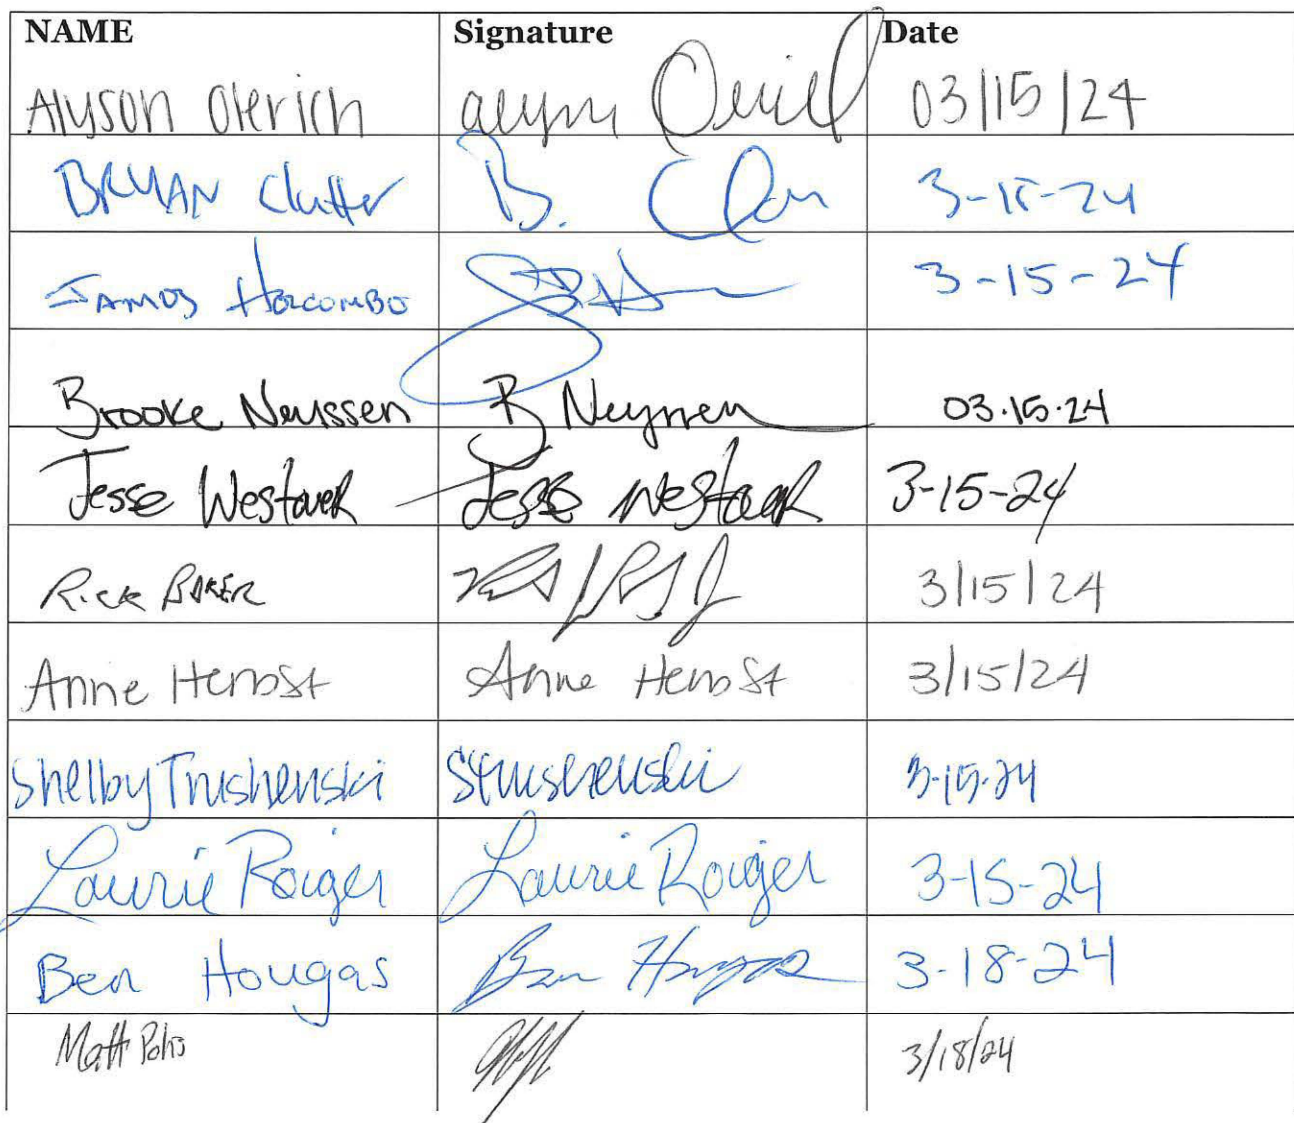 NAME Signature Date
Alyson Olerich 03/15/24
BRYAN Clutter B. 3-15-24
JAMES HOLCOMBE 3-15-24
Brooke Neyssen B Neyssen 03.15.24
Jesse Westover Jesse Westover 3-15-24
Rick BAKER 3/15/24
Anne Herbst Anne Herbst 3/15/24
Shelby Trushenski STrushenski 3-15-24
Laurie Roiger Laurie Roiger 3-15-24
Ben Hougas Ben Hougas 3-18-24
Matt 3/18/24